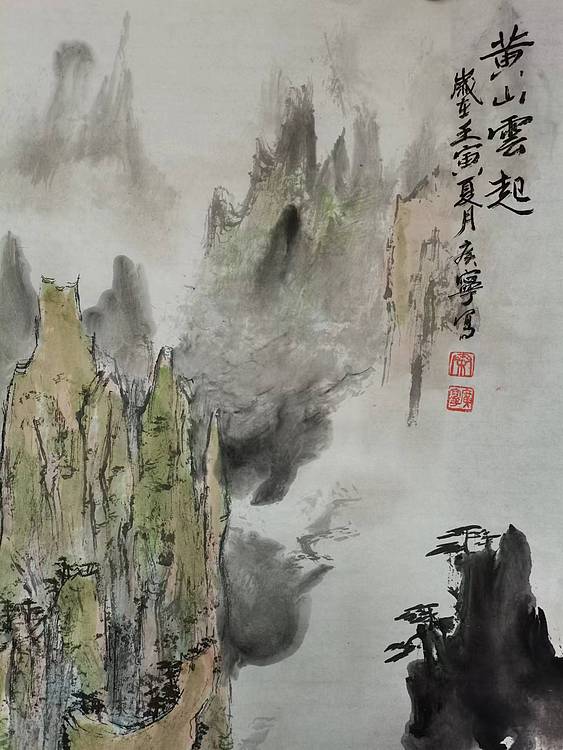 黄山雲起
歲在壬寅夏月寧寫